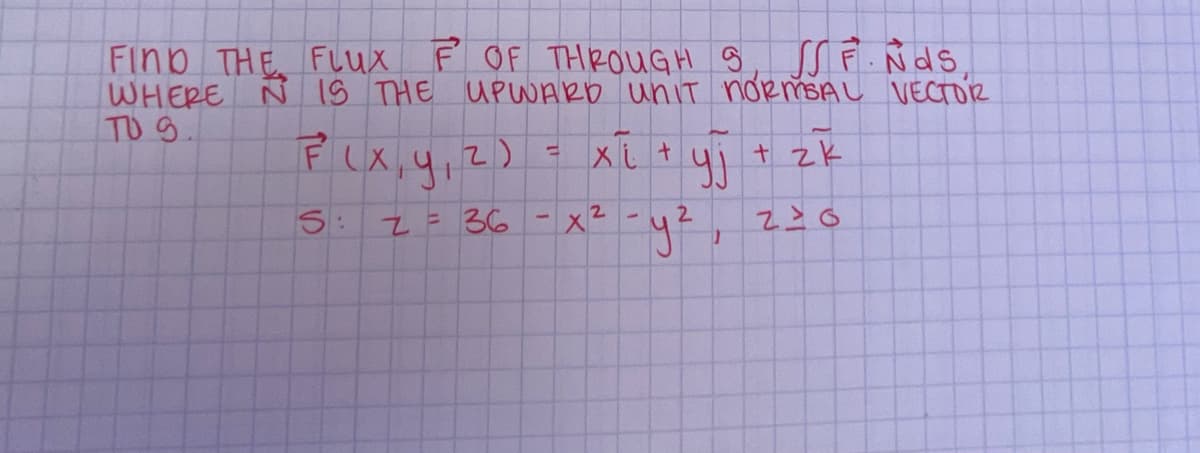 FIND THE FLUX F⃗ OF THROUGH S, ∬ F⃗ · N⃗ dS,
WHERE N⃗ IS THE UPWARD UNIT NORMSAL VECTOR
TO S.
F⃗ (x, y, z) = xi̅ + yj̅ + zk̅
S: z = 36 - x² - y², z ≥ 0